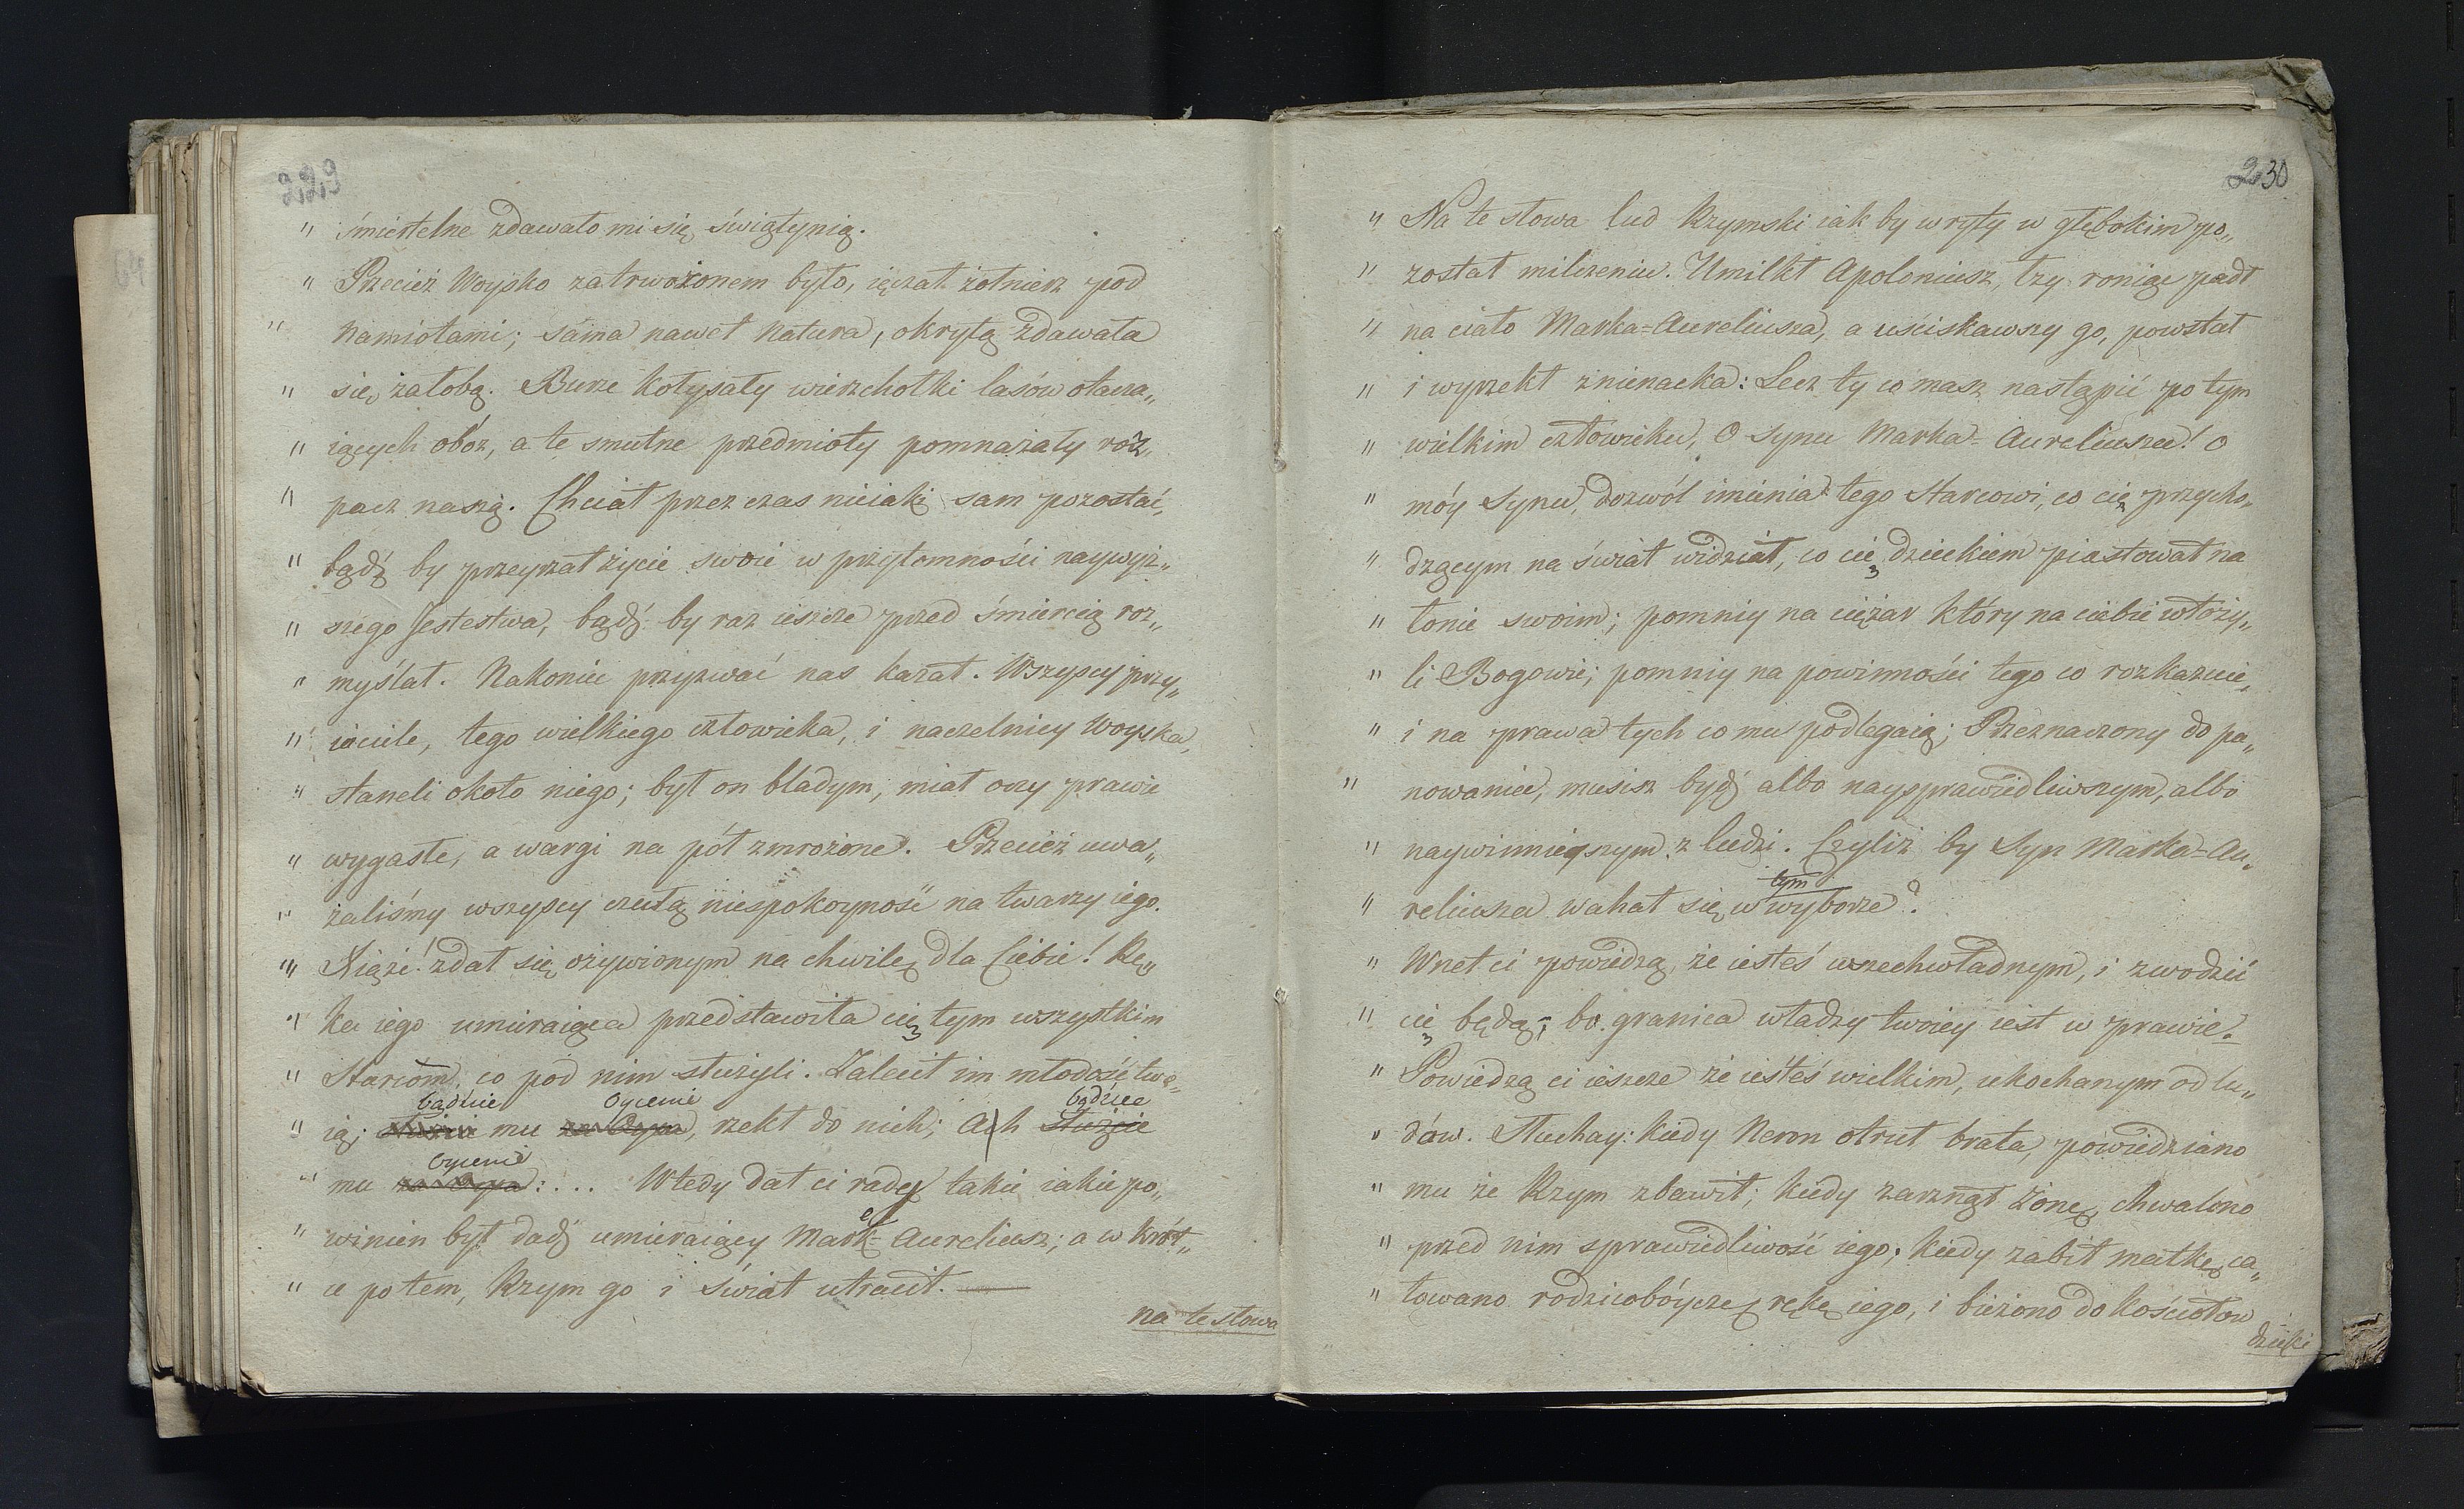 229
" śmiertelne zdawało mi się świątynią.
" Przecież Woysko zatrwożonem było, ięczał żołnierz pod
" Namiotami; sama nawet Natura, okrytą zdawała
" się żałobą. Burze kołysały wierzchołki lasów otacza„
" iących obóz, a te smutne przedmioty pomnażały roz„
" pacz naszą. Chciał przez czas nieiaki sam pozostać,
" bądź by przeyrzał życie swoie w przytomności naywyż„
" szego Jestestwa, bądź by raz ieszcze przed śmiercią roz„
" myślał. Nakoniec przyzwać nas kazał. Wszyscy przy„
" iaciele, tego wielkiego człowieka, i naczelnicy Woyska,
" staneli około niego; był on bladym, miał oczy prawie
" wygasłe, a wargi na pół zmrożone. Przecież uwa„
" żaliśmy wszyscy czułą niespokoyność na twarzy iego.
" Xiąże! zdał się ożywionym na chwilę dla Ciebie! Rę„
" ka iego umieraiąca przedstawiła cię tym wszystkim
" Starcom, co pod nim służyli. Zalecił im młodość two„
bądźcie Oycem bądźcie
" ią; służcie mu za Oyca, rzekł do nich; Ach służcie
Oycem
" mu za Oyca:... Wtedy dał ci rady takie iakie po„
" winien był dadź umieraiący Marek-Aureliusz; a w krót„
" ce potem, Rzym go i świat utracił.
na te słowa
230
" Na te słowa lud Rzymski iak by wryty w głębokim po„
" został milczeniu. Umilkł Apoloniusz, łzy roniąc padł
" na ciało Marka=Aureliusza, a uściskawszy go, powstał
" i wyrzekł znienacka: Lecz ty co masz nastąpić po tym
" wielkim człowieku, O Synu Marka-Aureliusza! O
" móy Synu, dozwól imienia tego Starcowi, co cię przycho„
" dzącym na świat widział, co cię dzieckiem piastował na
" łonie swoim; pomniy na ciężar który na ciebie włoży„
" li Bogowie; pomniy na powinności tego co rozkazuie,
" i na prawa tych co mu podlegaią; Przeznaczony do pa„
" nowania, musisz bydź albo naysprawiedliwszym, albo
" naywinnieyszym z ludzi. Czyliż by Syn Marka-Au„
tym
" reliusza wahał się w wyborze?
" Wnet ci powiedzą, że iesteś wszechwładnym, i zwodzić
" cię będą; bo granica władzy twoiey iest w prawie.
" Powiedzą ci ieszcze że iesteś wielkim, ukochanym od lu„
" dów. Słuchay: kiedy Neron otruł brata, powiedziano
" mu że Rzym zbawił; kiedy zarznął żonę, chwalono
" przed nim sprawiedliwość iego; kiedy zabił matkę, ca„
" łowano rodzicobóyczą rękę iego, i bieżono do kościołów
dzięki